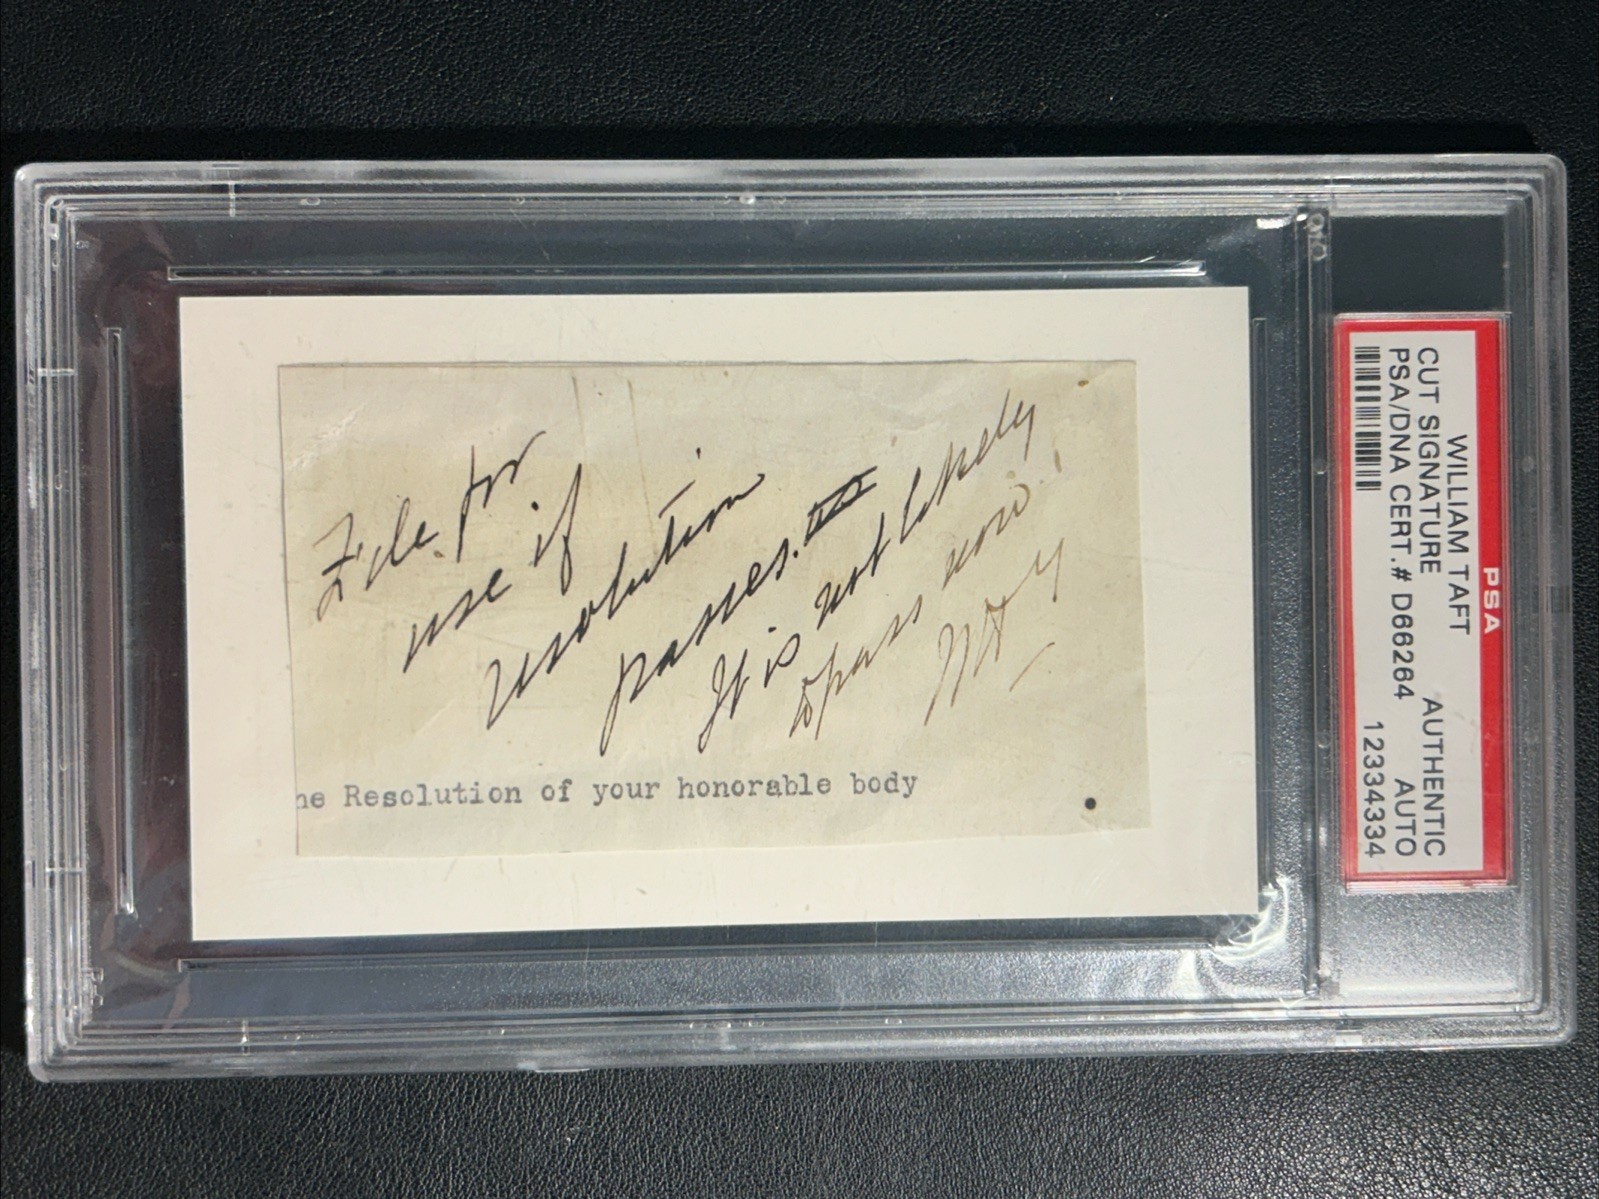 File for
use if
resolution
passes.
It is not likely
to pass now.
he Resolution of your honorable body
PSA
WILLIAM TAFT
CUT SIGNATURE AUTHENTIC
PSA/DNA CERT.# D66264 AUTO
12334334